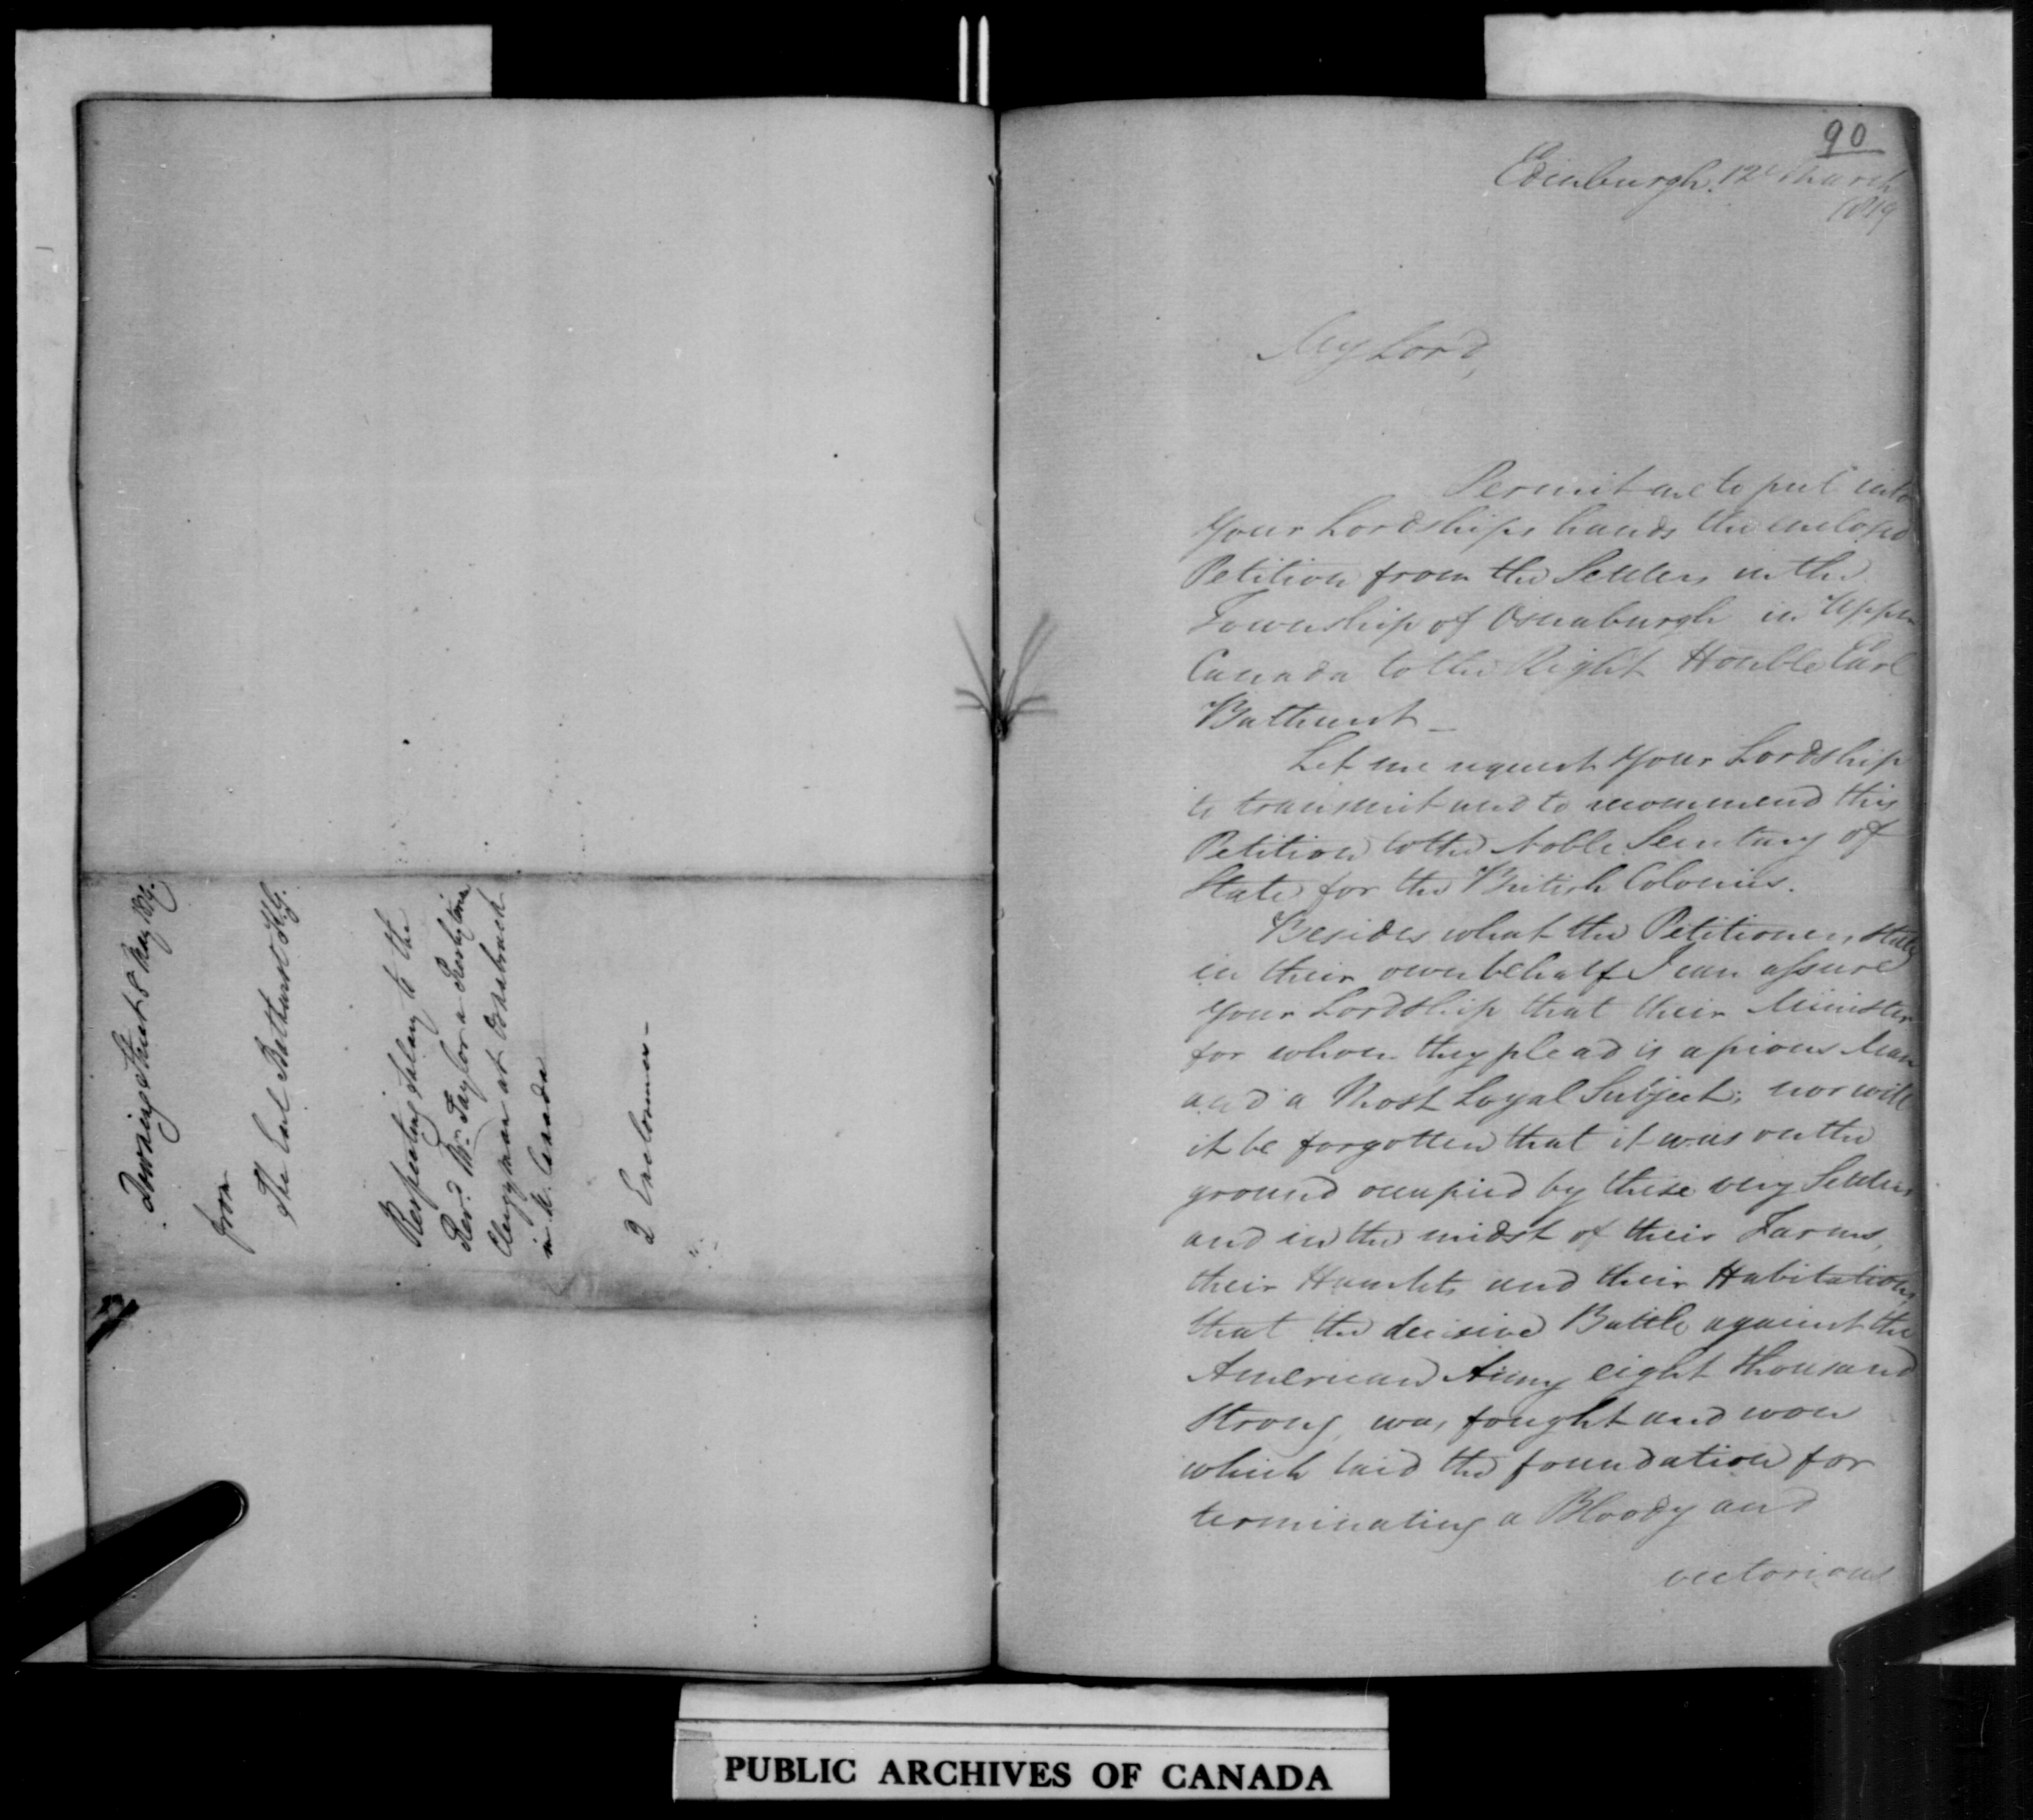 Downing Street 8 May 1819.
from
The Earl Bathurst K.G.
Respecting Salary to the
Revd. Mr. Taylor a Presbyterian
Clergyman at Osnabruck
in U. Canada
2 Enclosures -
90
Edinburgh. 12th March
1819
My Lord,
Permit me to put into
Your Lordships hands the enclosed
Petition from the Settlers in the
Township of Osnaburgh in Upper
Canada to the Right Honble Earl
Bathurst _
Let me request Your Lordship
to transmit and to recommend this
Petition to the Noble Secretary of
State for the British Colonies.
Besides what the Petitioners state
in their own behalf I can assure
Your Lordship that their Minister
for whom they plead is a pious Man
and a Most Loyal Subject; nor will
it be forgotten that it was on the
ground occupied by these very Settlers
and in the midst of their Farms,
their Hamlets and their Habitations,
that the decisive Battle against the
American Army eight thousand
strong, was fought and won
which laid the foundation for
terminating a Bloody and
victorious
PUBLIC ARCHIVES OF CANADA